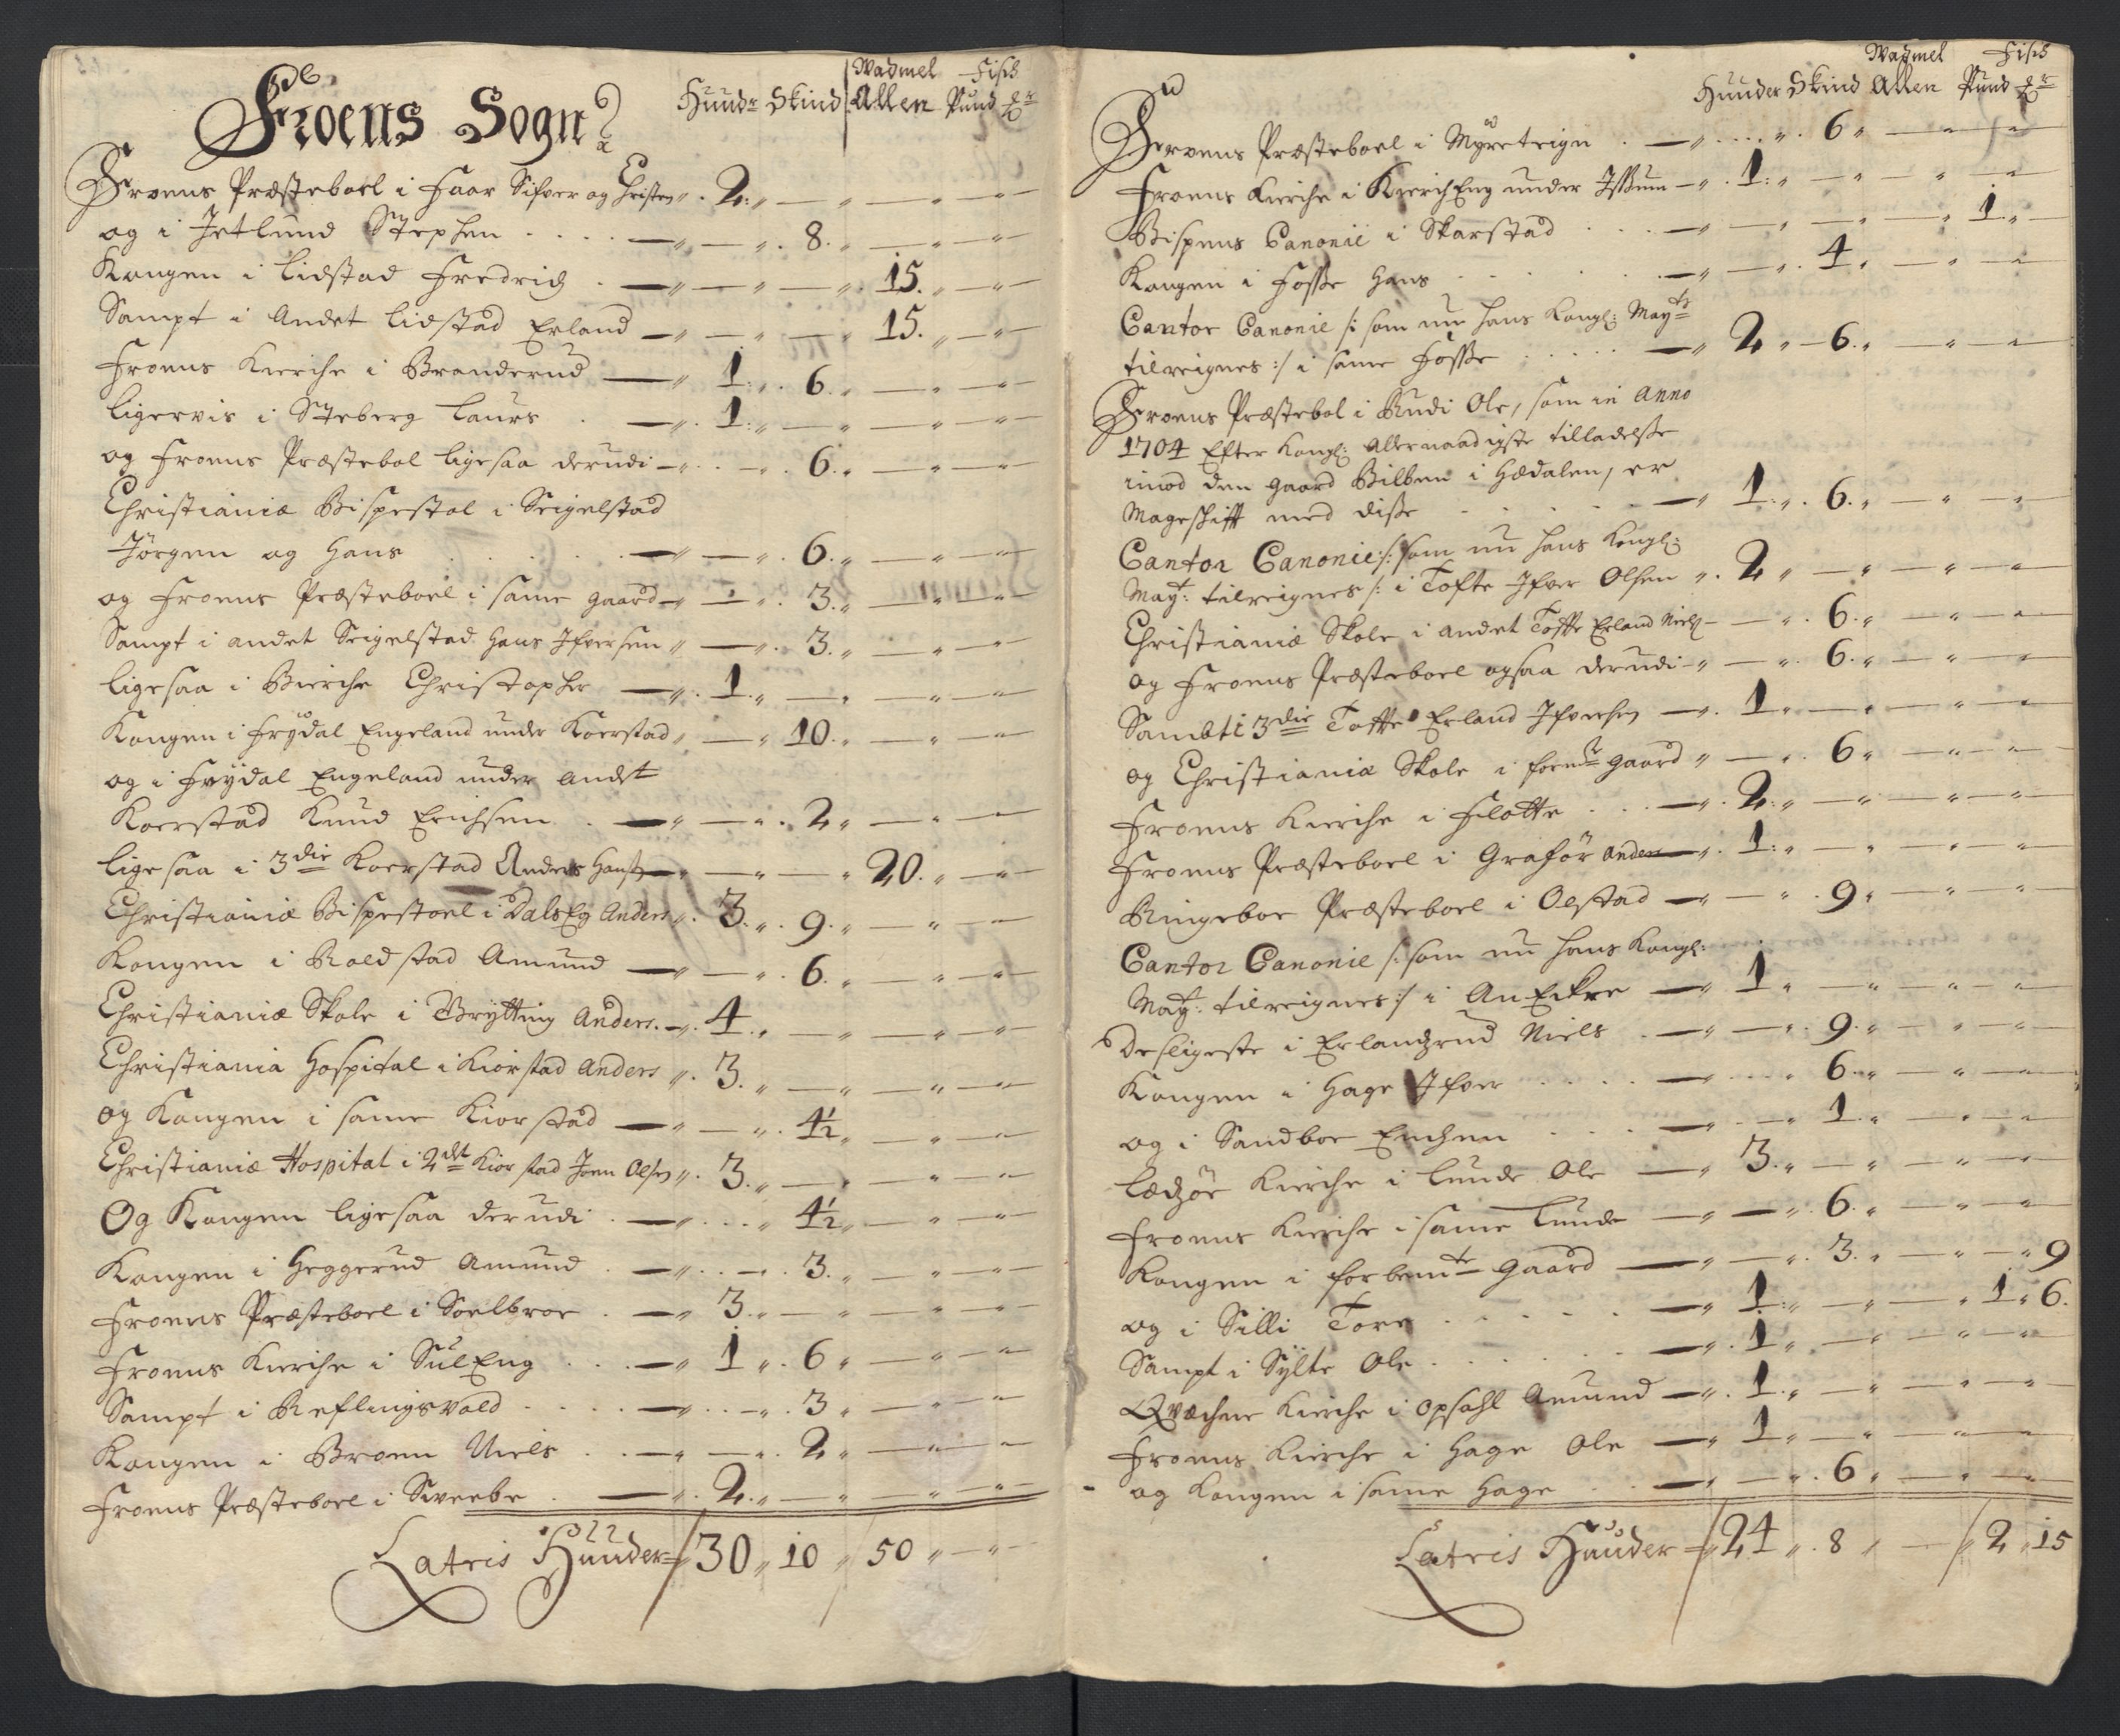 Wadmel Fisk
Froens Sogn Huudr Skind Allen Pund
Froens Præsteboel i Faar Sifver og Christen 2
og i Jetlund Stephen 8
Kongen i Lidstad Fredrich 15
Sampt i Andet Lidstad Erland 15
Froens Kierche i Branderud 1 6
Ligervis i Steberg Laurs 1
og Froens Præstebol ligesaa derudi 6
Christianiæ Bispestol i Seigelstad
Jørgen og Hans 6
og Froens Præsteboel i same gaard 3
Sampt i andet Seigelstad Hans Ifversen 3
ligesaa i Bierche Christopher 1
Kongen i Frydal Engeland under Koerstad 10
og i Frydal Engeland under andet
Koerstad Knud Erichsen 2
ligesaa i 3die Koerstad Anders Hans 20
Christianiæ Bispestoel i Dals Eg Anders 3 9
Kongen i Roldstad Amund 6
Christianiæ Skole i Brytting Anders 4
Christiania Hospital i Kiorstad Anders 3
og Kongen i same Kiorstad 4½
Christianiæ Hospital i 2det Kiorstad Joen Olsen 3
Og Kongen ligesaa derudi 4½
Kongen i Heggerud Amund 3
Froens Præsteboel i Soelbroe 3
Froens Kierche i SulEng 1 6
Sampt i Reflingsvold 3
Kongen i Broen Niels 2
Froens Præsteboel i Sweebe 2
Latris Huuder 30 10 50
Wadmel Fisk
Huuder Skind Allen Pund
Froens Præsteboel i Myreteign 6
Froens Kierche i KierchEng under Isum 1
Bispens Canonie i Skarstad 1
Kongen i Fosse Hans 4
Cantor Canonie /: som nu hans Kongl: Mayts
tilreignes :/ i same Fosse 2 6
Froens Præstebol i Rudi Ole, som in Anno
1704 Efter Kongl: Allernaadigste tilladelsse
imod den gaard Bilben i Hædalen, er
Mageskift med disse 1 6
Cantor Canonie /: som nu hans Kongl:
Mayt: tilreignes :/ i Tofte Ifver Olsen 2
Christianiæ Skole i andet Tofte Erland Niels 6
og Froens Præsteboel ogsaa derudi 6
Sambt i 3die Tofte Erland Ifversen 1
og Christianiæ Skole i forne gaard 6
Froens Kierche i Flotte 2
Froens Præsteboel i Grafør Anders 1
Ringeboe Præsteboel i Olstad 9
Cantor Canonie /: som nu hans Kongl:
Mayt: tilreignes :/ i AnEkre 1
Desligeste i Erlandzrud Niels 9
Kongen i Hage Ifver 6
og i Sandboe Enchen 1
Ledzøe Kierche i Lunde Ole 3
Froens Kierche i same Lunde 6
Kongen i forbemte Gaard 3 9
og i Silli Tore 1 1 6
Sampt i Sylte Ole 1
Qvæchne Kierche i Opsahl Amund 1
Froens Kierche i Hage Ole 1
og Kongen i same Hage 6
Latris Huuder 24 8 2 15